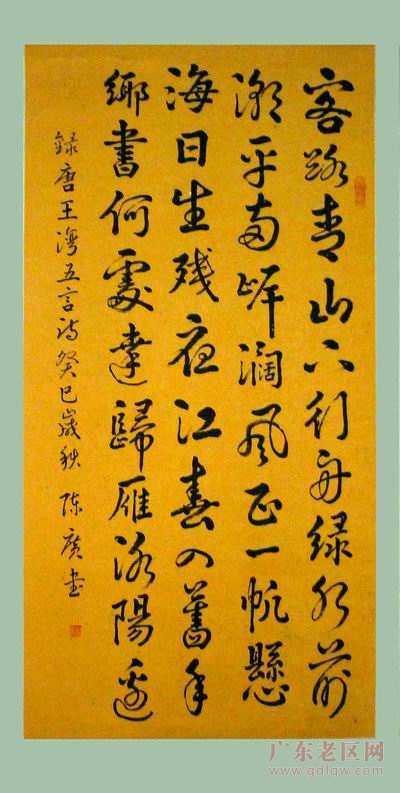 客路青山下行舟緑水前
潮平两岸濶风正一帆懸
海日生残夜江春入舊年
鄉書何處達歸雁洛陽邊
録唐王灣五言诗癸巳歲秋 陈廣书
广东老区网
www.gdlqw.com